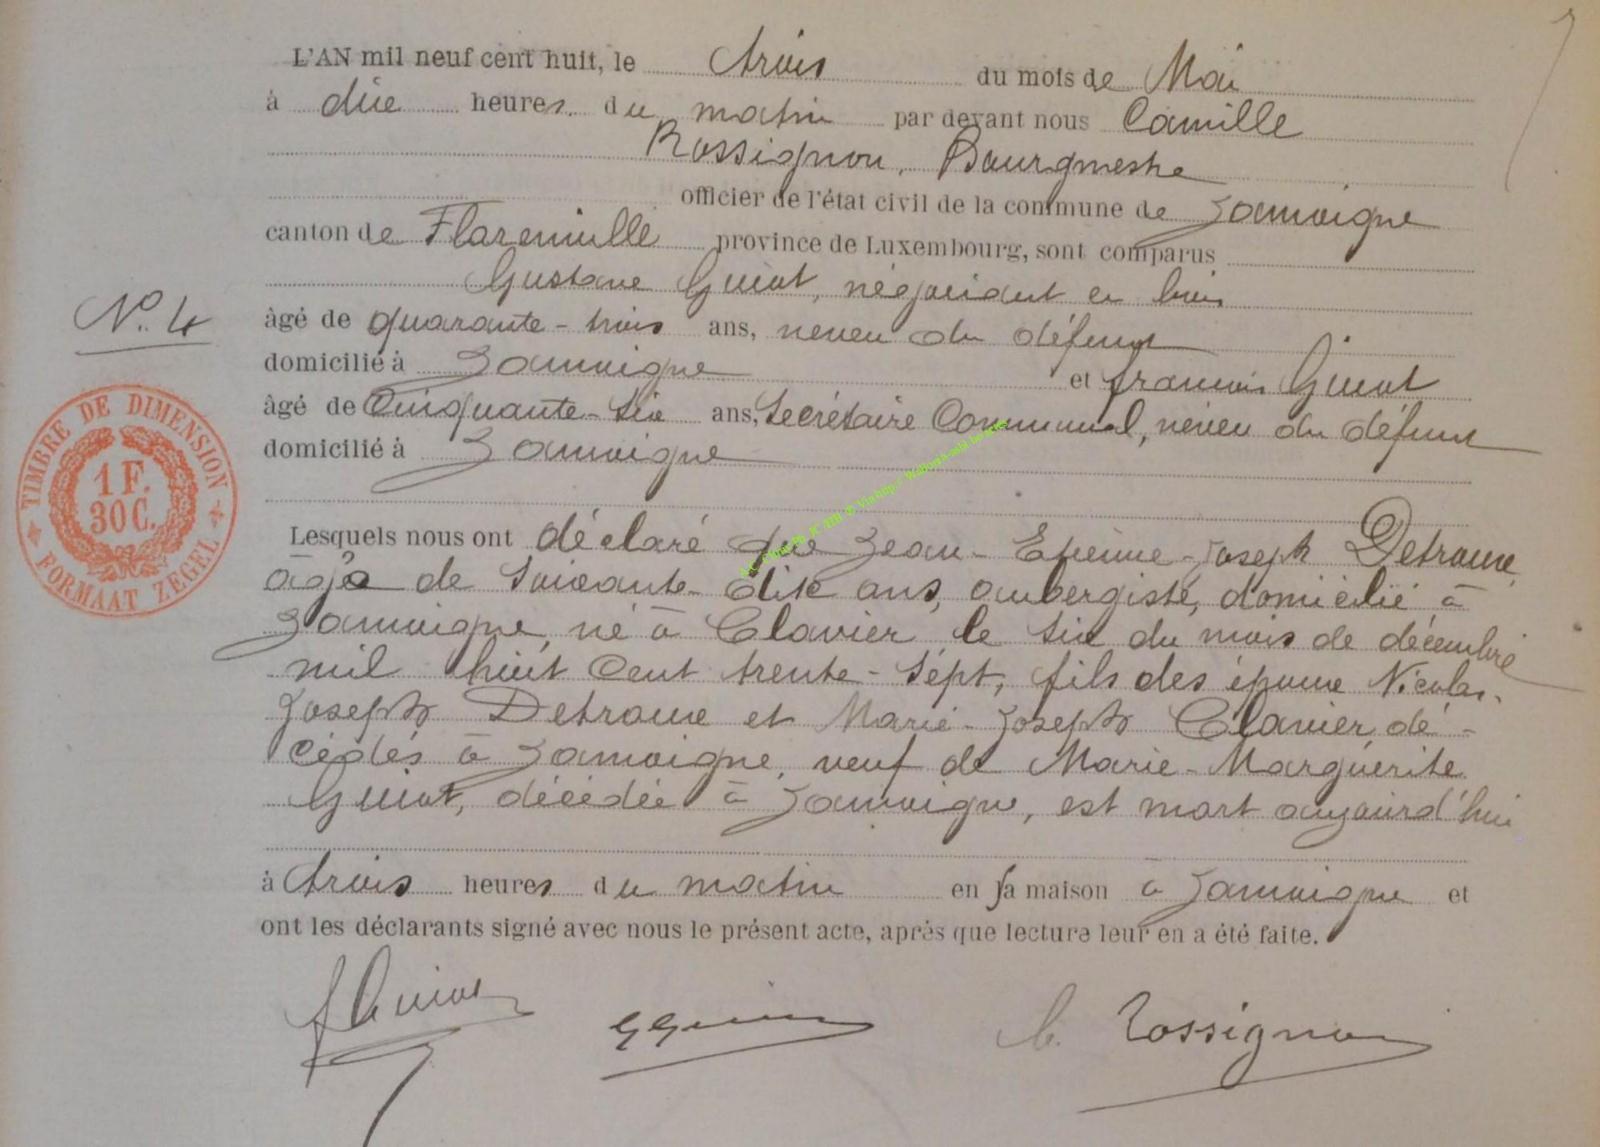 L'AN mil neuf cent huit, le trois du mois de Mai
à dix heures du matin par devant nous Camille
Rossignon, Bourgmestre
officier de l'état civil de la commune de Jamoigne
canton de Florenville province de Luxembourg, sont comparus
Gustave Guiot, négociant en bois
N° 4
âgé de quarante-trois ans, neveu du défunt
domicilié à Jamoigne et françois Guiot
âgé de Cinquante-six ans, Secrétaire Communal, neveu du défunt
domicilié à Jamoigne
TIMBRE DE DIMENSION
1 F.
30 C.
FORMAAT ZEGEL
Lesquels nous ont déclaré que Jean-Etienne-Joseph Detraux
âgé de Soixante-dix ans, aubergiste, domicilié à
Jamoigne, né à Clavier le six du mois de décembre
mil huit cent trente-sept, fils des époux Nicolas-
Joseph Detraux et Marie-Joseph Clavier, dé-
cédés à Jamoigne, veuf de Marie-Marguerite
Guiot, décédée à Jamoigne, est mort aujourd'hui
à trois heures du matin en sa maison à Jamoigne et
ont les déclarants signé avec nous le présent acte, après que lecture leur en a été faite.
f Guiot GGuiot C. Rossignon